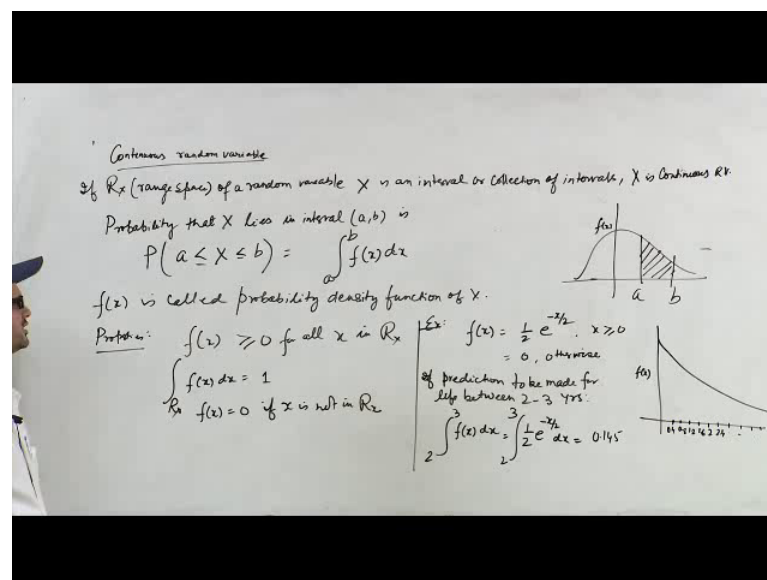 Continuous random variable
If Rx (range space) of a random variable X is an interval or collection of intervals, X is Continuous RV.
Probability that X lies in interval (a,b) is
P(a ≤ X ≤ b) = ∫_a^b f(x) dx
f(x)
a b
f(x) is called probability density function of X.
Properties: f(x) ≥ 0 for all x in Rx
∫_Rx f(x) dx = 1
f(x) = 0 if x is not in Rx
Ex: f(x) = 1/2 e^(-x/2), x ≥ 0
= 0, otherwise
If prediction to be made for
life between 2-3 yrs.
∫_2^3 f(x) dx = ∫_2^3 1/2 e^(-x/2) dx = 0.145
f(x)